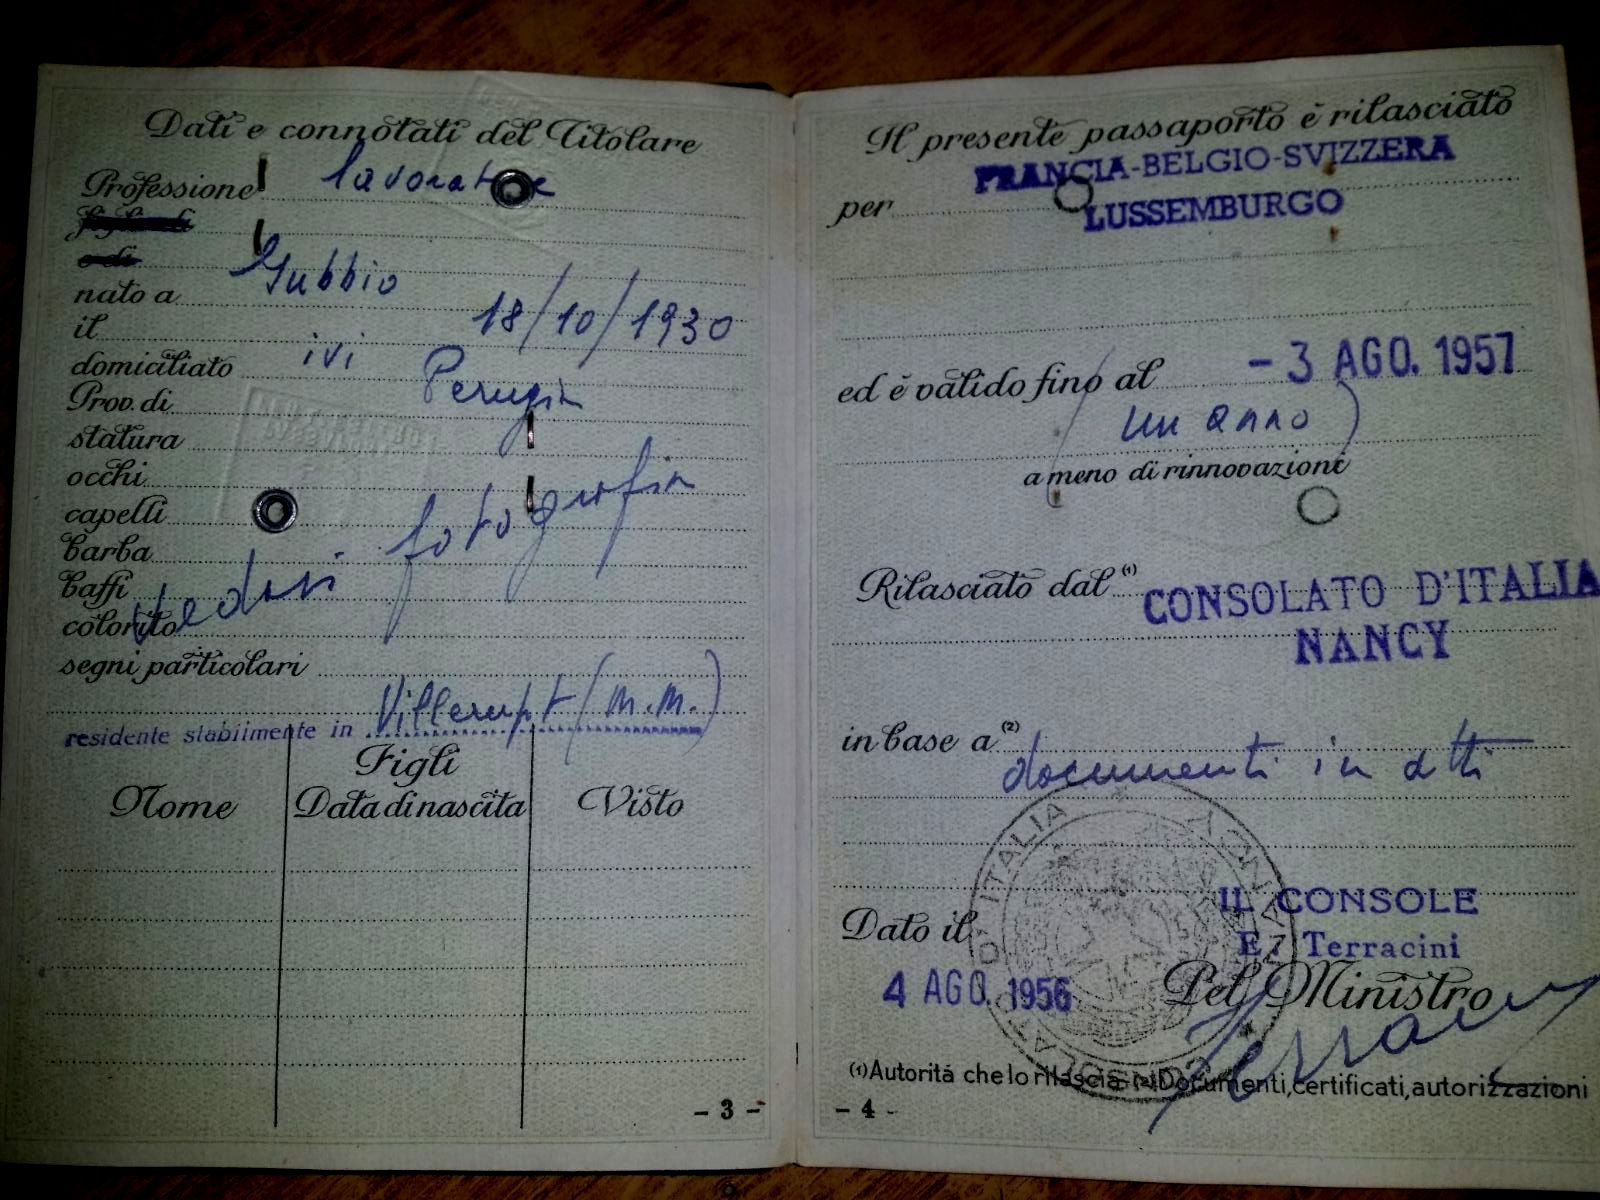 Dati e connotati del Titolare
Professione lavoratore
nato a Gubbio
il 18/10/1930
domiciliato ivi
Prov. di Perugia
statura
occhi
capelli
barba
baffi
colorito
vedasi fotografia
segni particolari
residente stabilmente in Villerupt (M.M.)
Figli
Nome Data di nascita Visto
- 3 -
Il presente passaporto è rilasciato
per FRANCIA-BELGIO-SVIZZERA
LUSSEMBURGO
ed è valido fino al - 3 AGO. 1957
(un anno)
a meno di rinnovazione
Rilasciato dal (1) CONSOLATO D'ITALIA
NANCY
in base a (2) documenti in atti
IL CONSOLE
Terracini
Dato il
4 AGO. 1956
Pel Ministro
(1) Autorità che lo rilascia - (2) Documenti, certificati, autorizzazioni
- 4 -